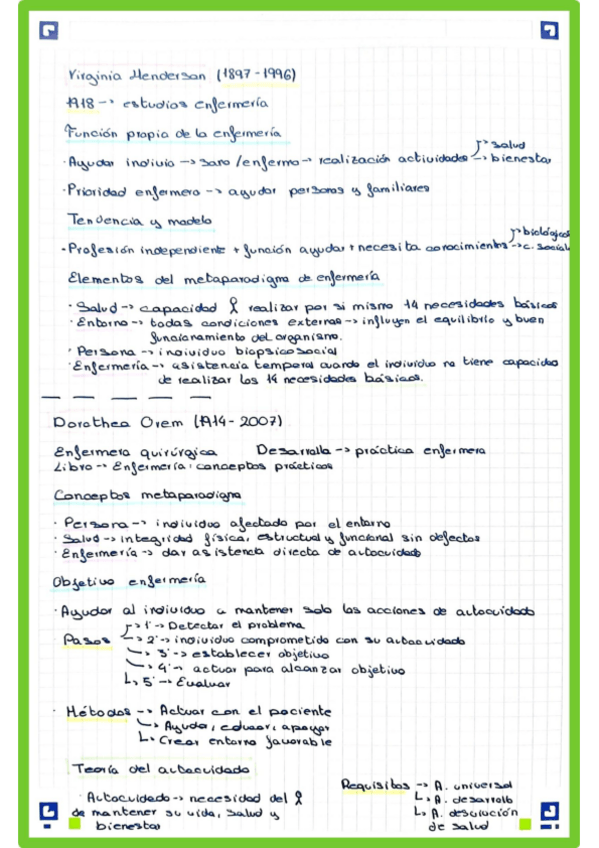 Virginia Henderson (1897-1996)
1918 -> estudios enfermería
Función propia de la enfermería
· Ayudar indivio -> sano / enfermo -> realización actividades -> salud
-> bienestar
· Prioridad enfermera -> ayudar personas y familiares
Tendencia y modelo
· Profesión independiente + función ayudar + necesita conocimientos -> biológicos
-> c. social
Elementos del metaparadigma de enfermería
· Salud -> capacidad realizar por si mismo 14 necesidades básicas
· Entorno -> todas condiciones externas -> influyen el equilibrio y buen
funcionamiento del organismo.
· Persona -> individuo biopsicosocial
· Enfermería -> asistencia temporal cuando el individuo no tiene capacidad
de realizar los 14 necesidades básicas.
Dorothea Orem (1914-2007)
Enfermera quirúrgica Desarrolla -> práctica enfermera
Libro -> Enfermería: conceptos prácticos
Conceptos metaparadigma
· Persona -> individuo afectado por el entorno
· Salud -> integridad física, estructual y funcional sin defectos
· Enfermería -> dar asistencia directa de autocuidado
Objetivo enfermería
· Ayudar al individuo a mantener solo las acciones de autocuidado
Pasos -> 1º -> Detectar el problema
-> 2º -> individuo comprometido con su autocuidado
-> 3º -> establecer objetivo
-> 4º -> actuar para alcanzar objetivo
-> 5º -> Evaluar
· Métodos -> Actuar con el paciente
-> Ayudar, educar, apoyar
-> Crear entorno favorable
Teoría del autocuidado
· Autocuidado -> necesidad del
de mantener su vida, salud y
bienestar
Requisitos -> A. universal
-> A. desarrollo
-> A. desviación
de salud